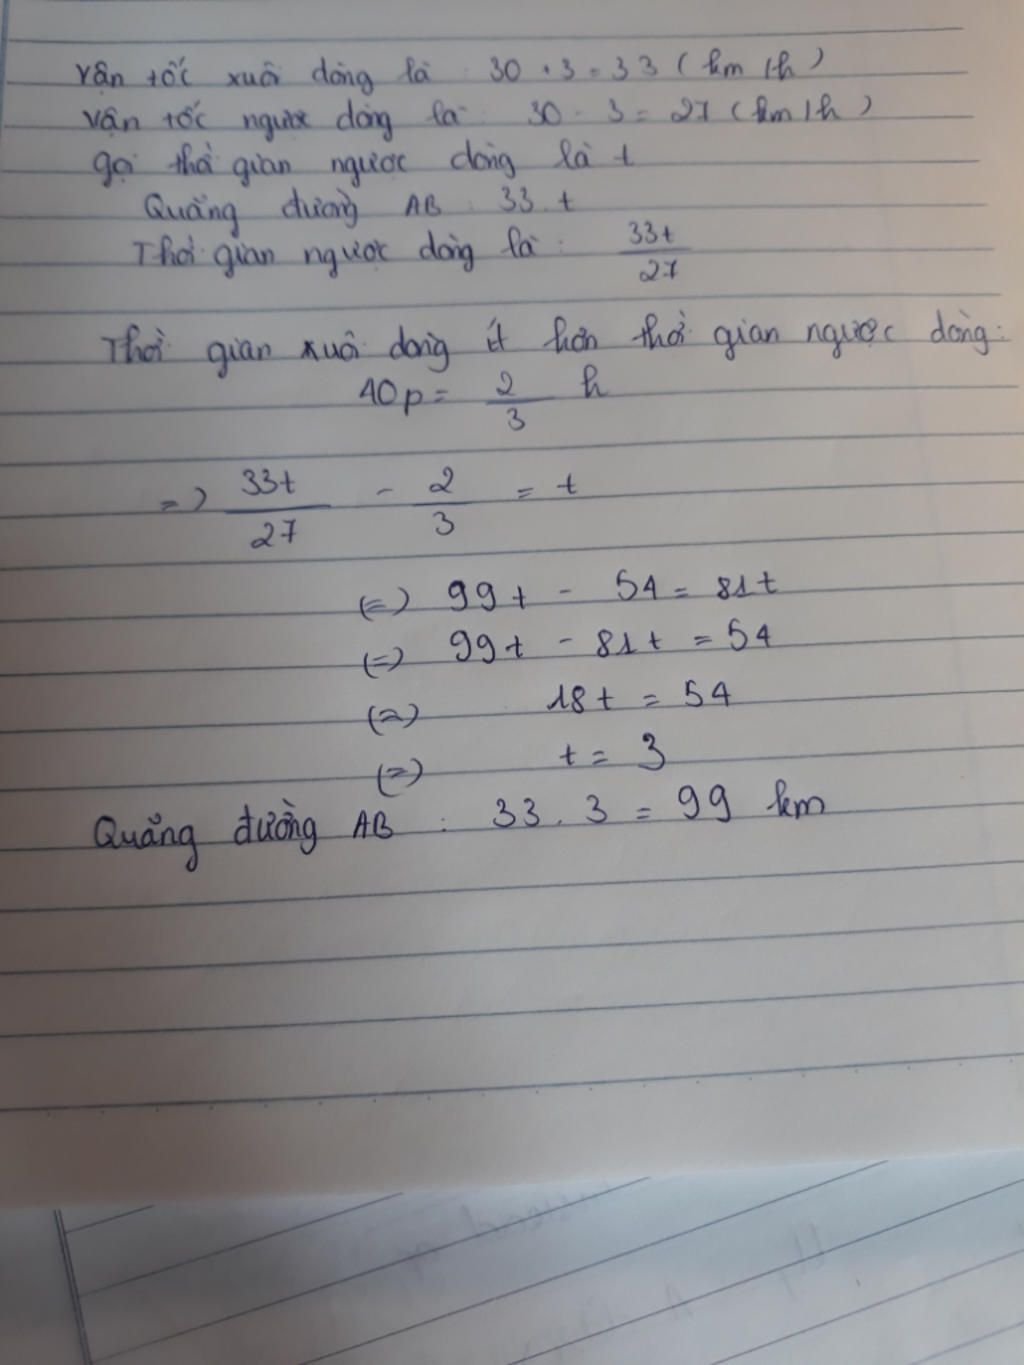 Vận tốc xuôi dòng là : 30 + 3 = 33 (km/h)
Vận tốc ngược dòng là : 30 - 3 = 27 (km/h)
gọi thời gian ngược dòng là t
Quãng đường AB : 33.t
Thời gian ngược dòng là : 33t/27
Thời gian xuôi dòng ít hơn thời gian ngược dòng :
40p = 2/3 h
=> 33t/27 - 2/3 = t
(=) 99t - 54 = 81t
(=) 99t - 81t = 54
(=) 18t = 54
(=) t = 3
Quãng đường AB : 33.3 = 99 km